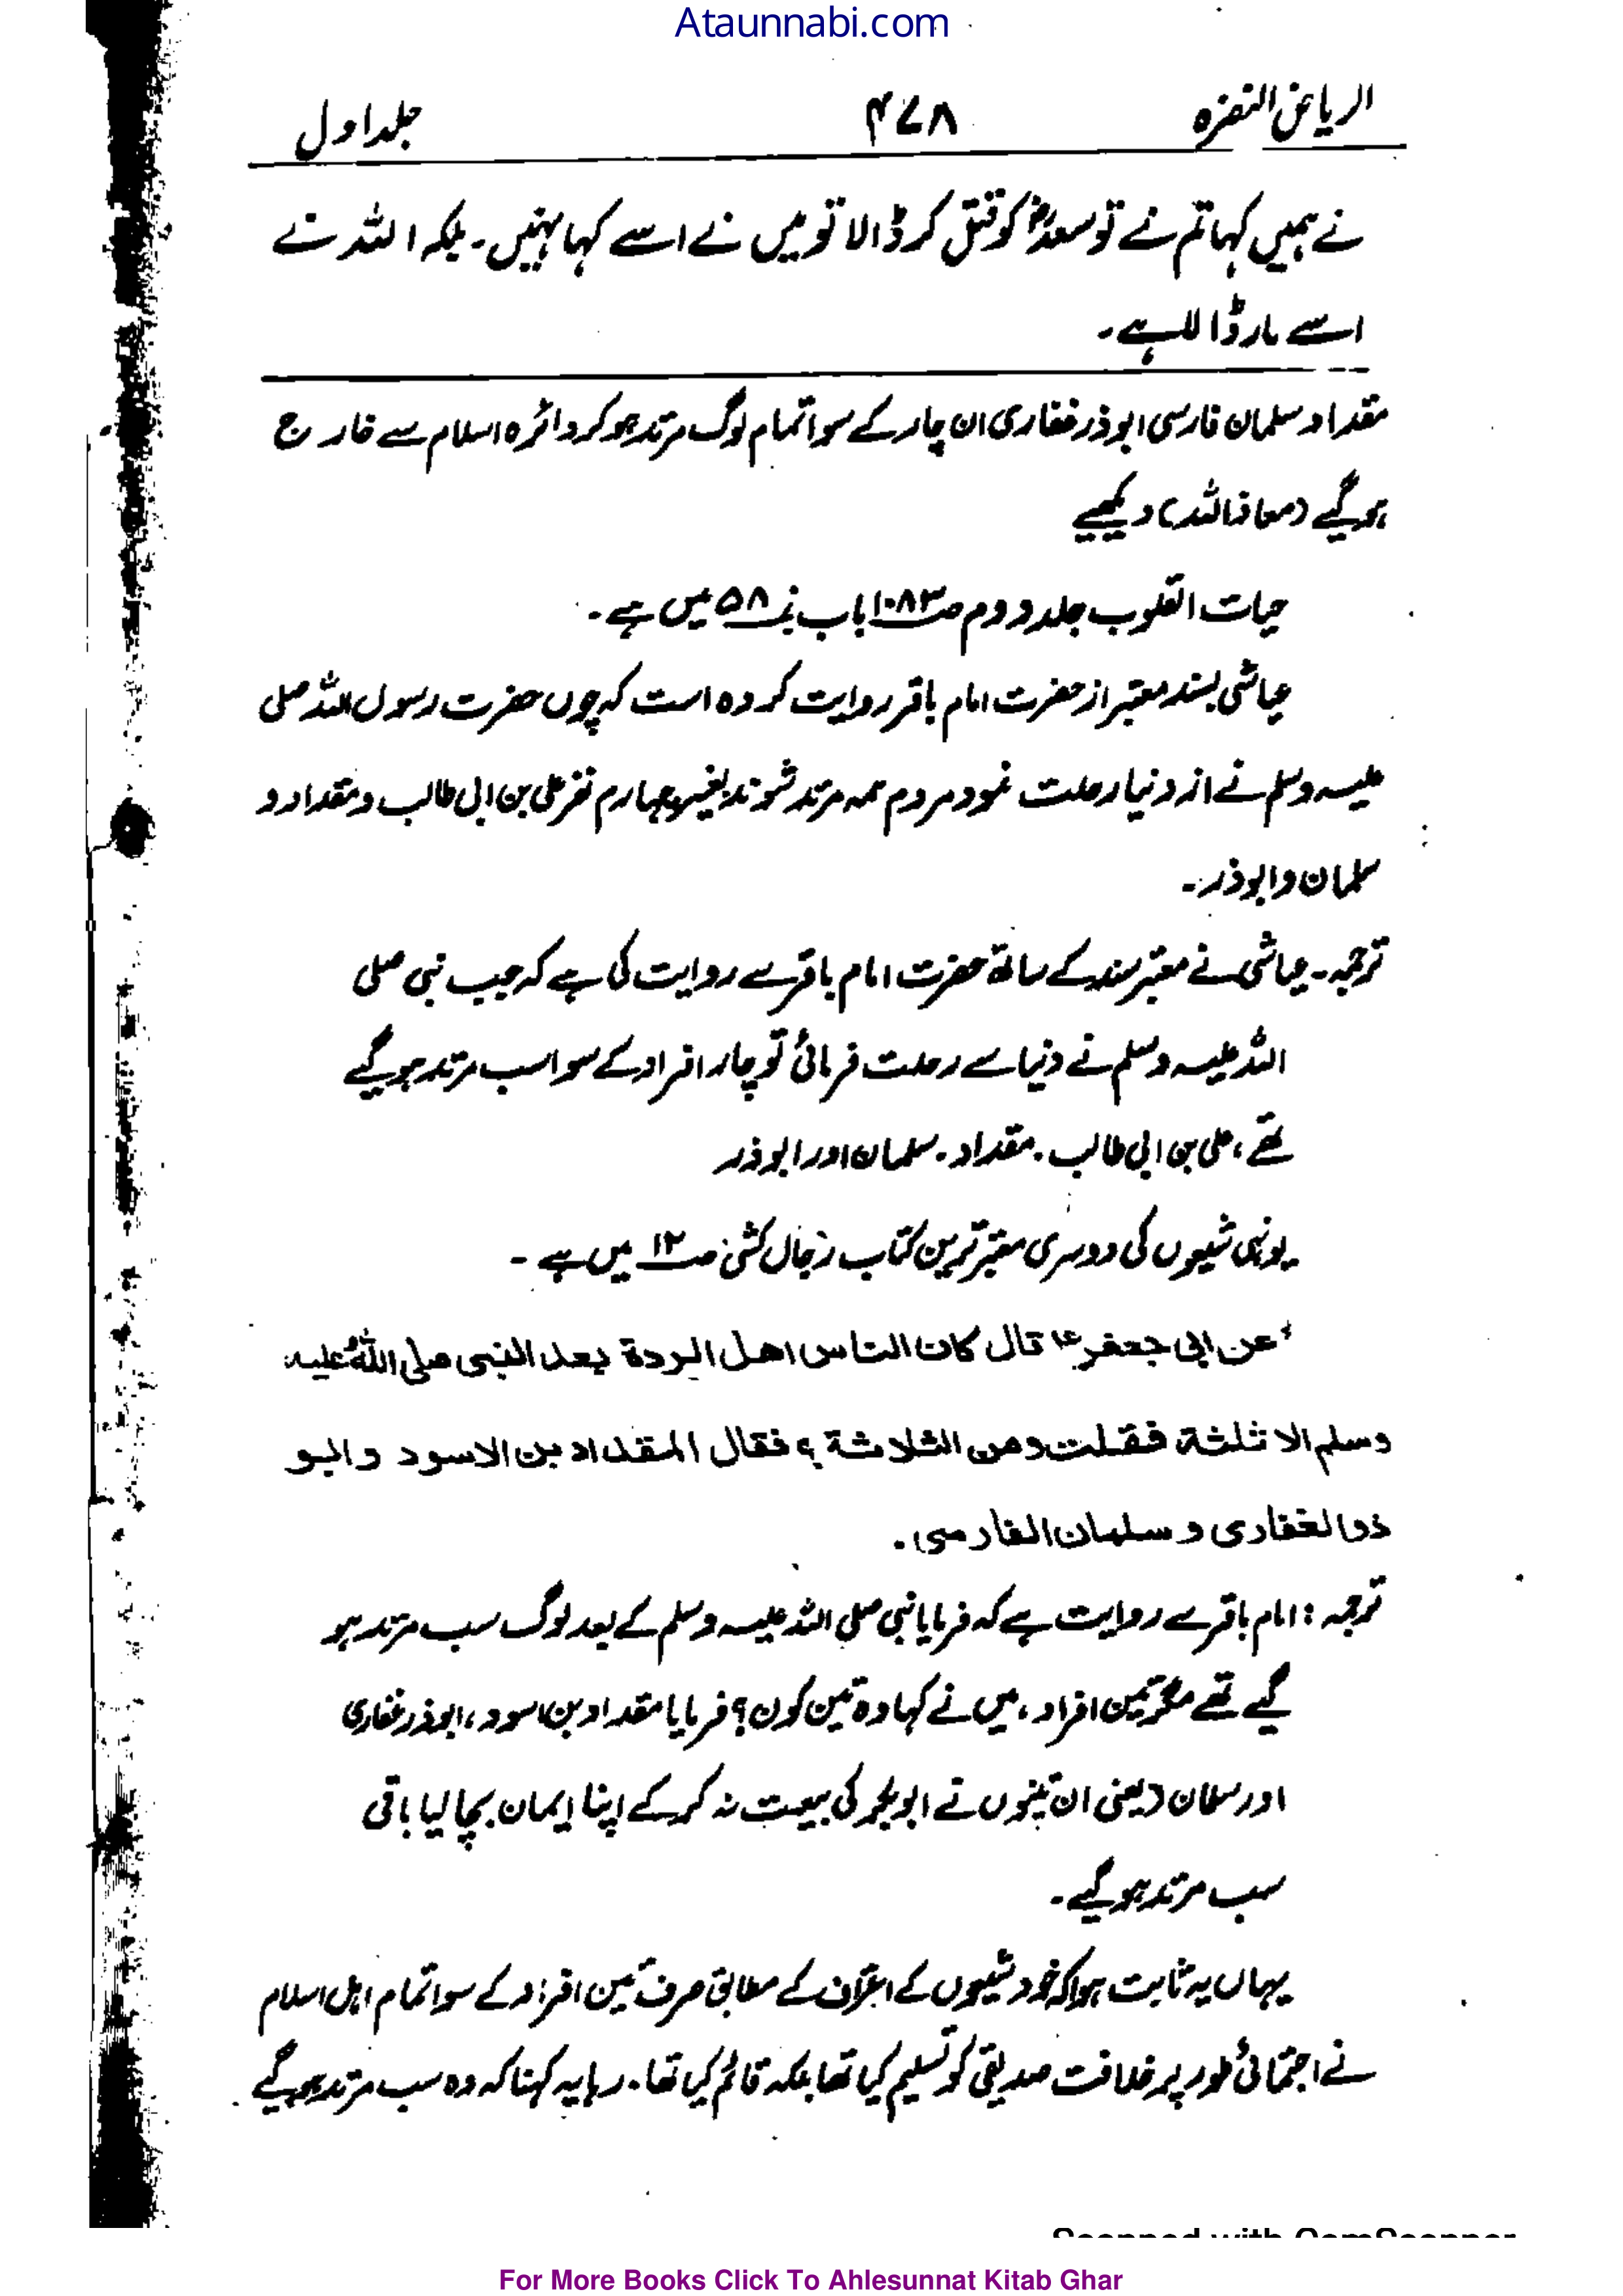 Ataunnabi.com
الریاض النضرہ ۴۷۸ جلد اول
نے ہمیں کہا تم نے تو سعدؓ کو قتل کر ڈالا تو میں نے اسے کہا نہیں۔ بلکہ اللہ نے
اسے مار ڈالا ہے۔
مقداد سلمان فارسی ابوذر غفاری ان چار کے سوا تمام لوگ مرتد ہو کر دائرہ اسلام سے خارج
ہو گیے (معاذ اللہ) دیکھیے
حیات القلوب جلد دوم صـ۱۰۸۳ باب نمبر ۵۸ میں ہے۔
عیاشی بسند معتبر از حضرت امام باقر روایت کردہ است کہ چوں حضرت رسول اللہ صلی
علیہ وسلم نے از دنیا رحلت نمود مردم ہمہ مرتد شوند بغیر چہارم نفر علی بن ابی طالب و مقداد و
سلمان و ابوذر۔
ترجمہ۔ عیاشی نے معتبر سند کے ساتھ حضرت امام باقر سے روایت کی ہے کہ جب نبی صلی
اللہ علیہ وسلم نے دنیا سے رحلت فرمائی تو چار افراد کے سوا سب مرتد ہو گیے
تھے، علی بن ابی طالب۔ مقداد۔ سلمان اور ابوذر
یونہی شیعوں کی دوسری معتبر ترین کتاب رجال کشی صـ۱۲ میں ہے۔
عن ابی جعفرؑ قال کان الناس اھل الردة بعد النبی صلی اللہ علیہ
وسلم الا ثلثة فقلت ومن الثلاثة؟ فقال المقداد بن الاسود و ابو
ذر الغفاری و سلمان الفارسی۔
ترجمہ: امام باقر سے روایت ہے کہ فرمایا نبی صلی اللہ علیہ وسلم کے بعد لوگ سب مرتد ہو
گیے تھے مگر تین افراد، میں نے کہا وہ تین کون؟ فرمایا مقداد بن اسود، ابوذر غفاری
اور سلمان (یعنی ان تینوں نے ابوبکر کی بیعت نہ کر کے اپنا ایمان بچا لیا باقی
سب مرتد ہو گیے۔
یہاں یہ ثابت ہوا کہ خود شیعوں کے اعتراف کے مطابق صرف تین افراد کے سوا تمام اہل اسلام
نے اجتماعی طور پر خلافت صدیقی کو تسلیم کیا تھا بلکہ قائم کیا تھا۔ رہا یہ کہنا کہ وہ سب مرتد ہو گیے
Scanned with CamScanner
For More Books Click To Ahlesunnat Kitab Ghar